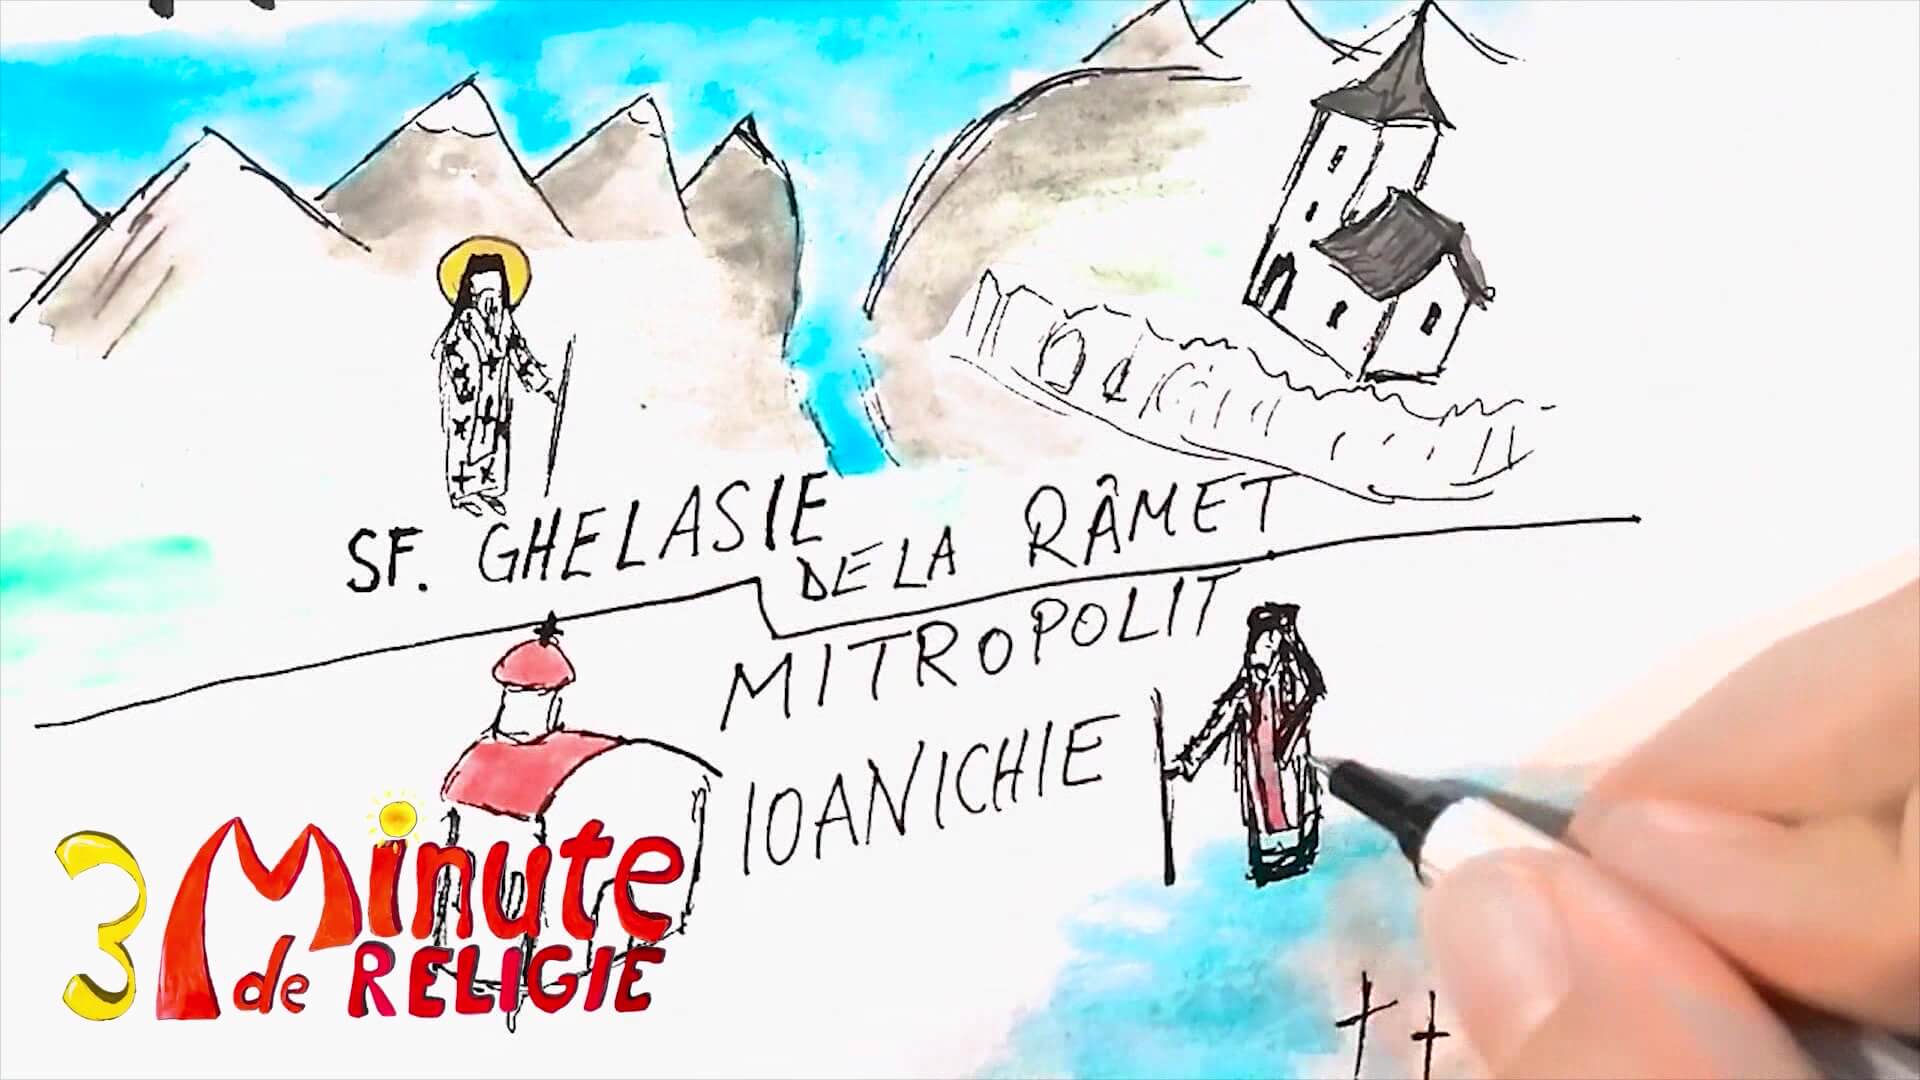 SF. GHELASIE
DE LA RÂMEȚ
MITROPOLIT
IOANICHIE
3 Minute
de RELIGIE